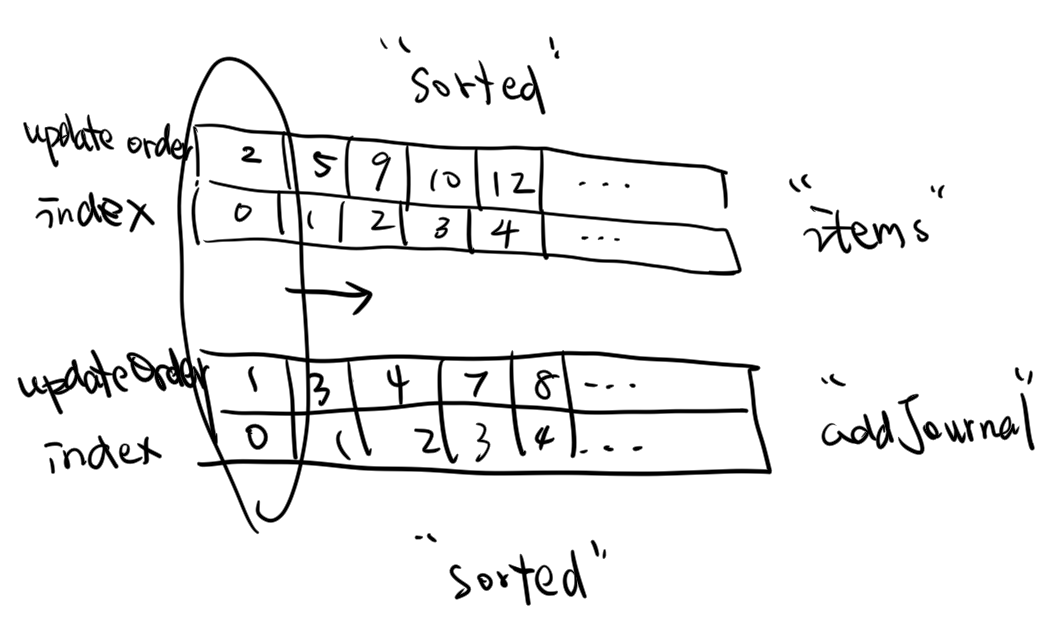 "sorted"
update order 2 5 9 10 12 ...
index 0 1 2 3 4 ...
"items"
updateOrder 1 3 4 7 8 ...
index 0 1 2 3 4 ...
"addJournal"
"sorted"